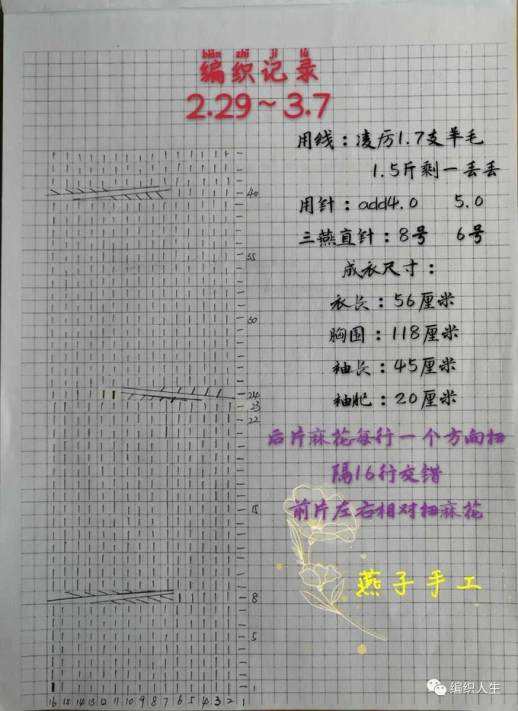 biān zhī jì lù
编织记录
2.29~3.7
用线：凌厉1.7支羊毛
1.5斤剩一丢丢
用针：add4.0 5.0
三燕直针：8号 6号
成衣尺寸：
衣长：56厘米
胸围：118厘米
袖长：45厘米
袖肥：20厘米
后片麻花每行一个方向扭
隔16行交错
前片左右相对扭麻花
燕子手工
40
35
30
24
23
22
15
8
5
1
16 15 14 13 12 11 10 9 8 7 6 5 4 3 2 1
编织人生